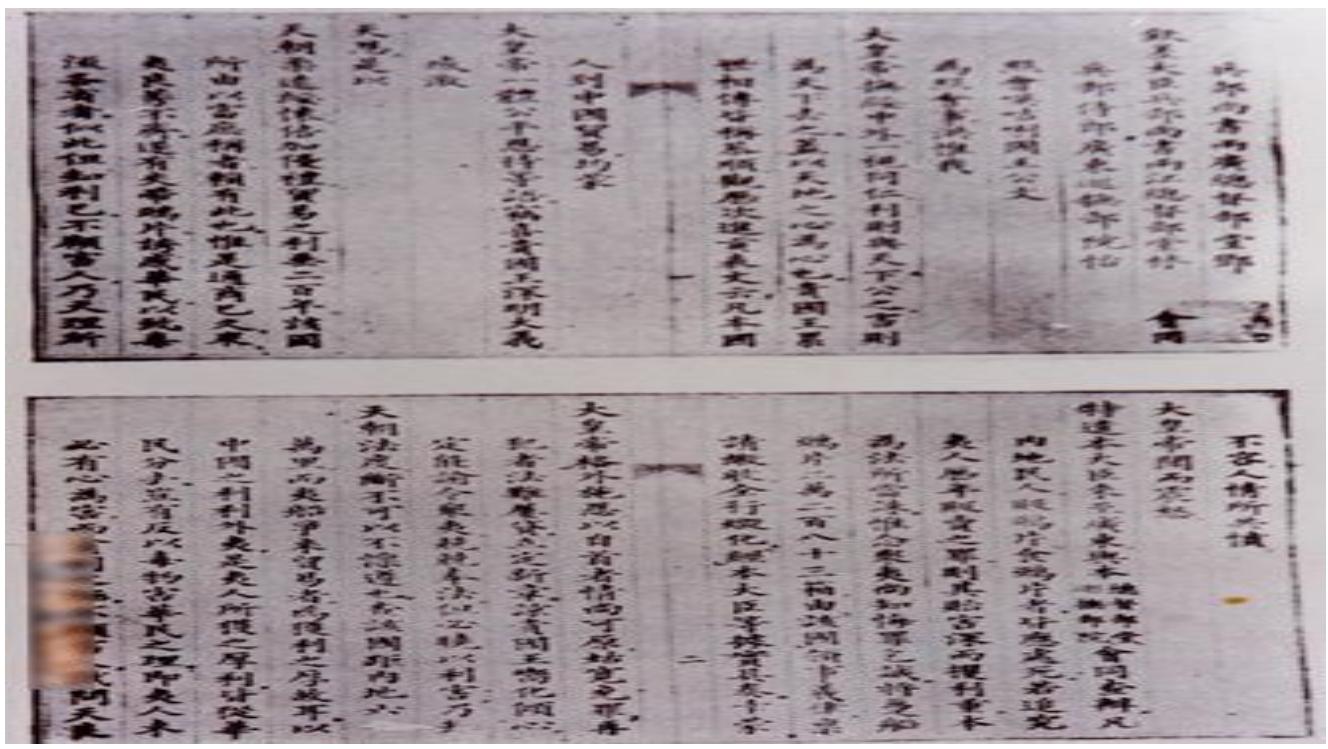 兵部尚書兩廣總督部堂鄧
欽差大臣兵部尚書兩江總督部堂林 會同
兵部侍郎廣東巡撫部院怡
照會𠸄咭唎國王公文
為照會事洪惟我
大皇帝撫綏中外一視同仁利則與天下公之害則
為天下去之蓋以天地之心為心也貴國王累
世相傳皆稱恭順觀歷次進貢表文云凡本國
一
人到中國貿易均蒙
大皇帝一體公平恩待等語竊喜貴國王深明大義
感激
天恩是以
天朝柔遠綏懷倍加優禮貿易之利垂二百年該國
所由以富庶稱者賴有此也惟是通商已久衆
夷良莠不齊遂有夾帶鴉片誘惑華民以致毒
流各省者似此但知利己不顧害人乃天理所
不容人情所共憤
大皇帝聞而震怒
特遣本大臣來至廣東與本總督部堂巡撫部院會同查辦凡
內地民人販鴉片食鴉片者皆應處死若追究
夷人歷年販賣之罪則其貽害深而攫利重本
為法所當誅惟念衆夷尚知悔罪乞誠將躉船
鴉片二萬二百八十三箱由該國領事義律稟
請繳收全行燬化經本大臣等據實具奏幸蒙
二
大皇帝格外施恩以自首者情尚可原姑寬免罪再
犯者法難屢貸立定新章諒貴國王嚮化傾心
定能諭令衆夷兢兢奉法但必曉以利害乃知
天朝法度斷不可以不懔遵也查該國距內地六七
萬里而夷船爭來貿易者為獲利之厚故耳以
中國之利利外夷是夷人所獲之厚利皆從華
民分去豈有反以毒物害華民之理即夷人未
必有心為害而 試問天良